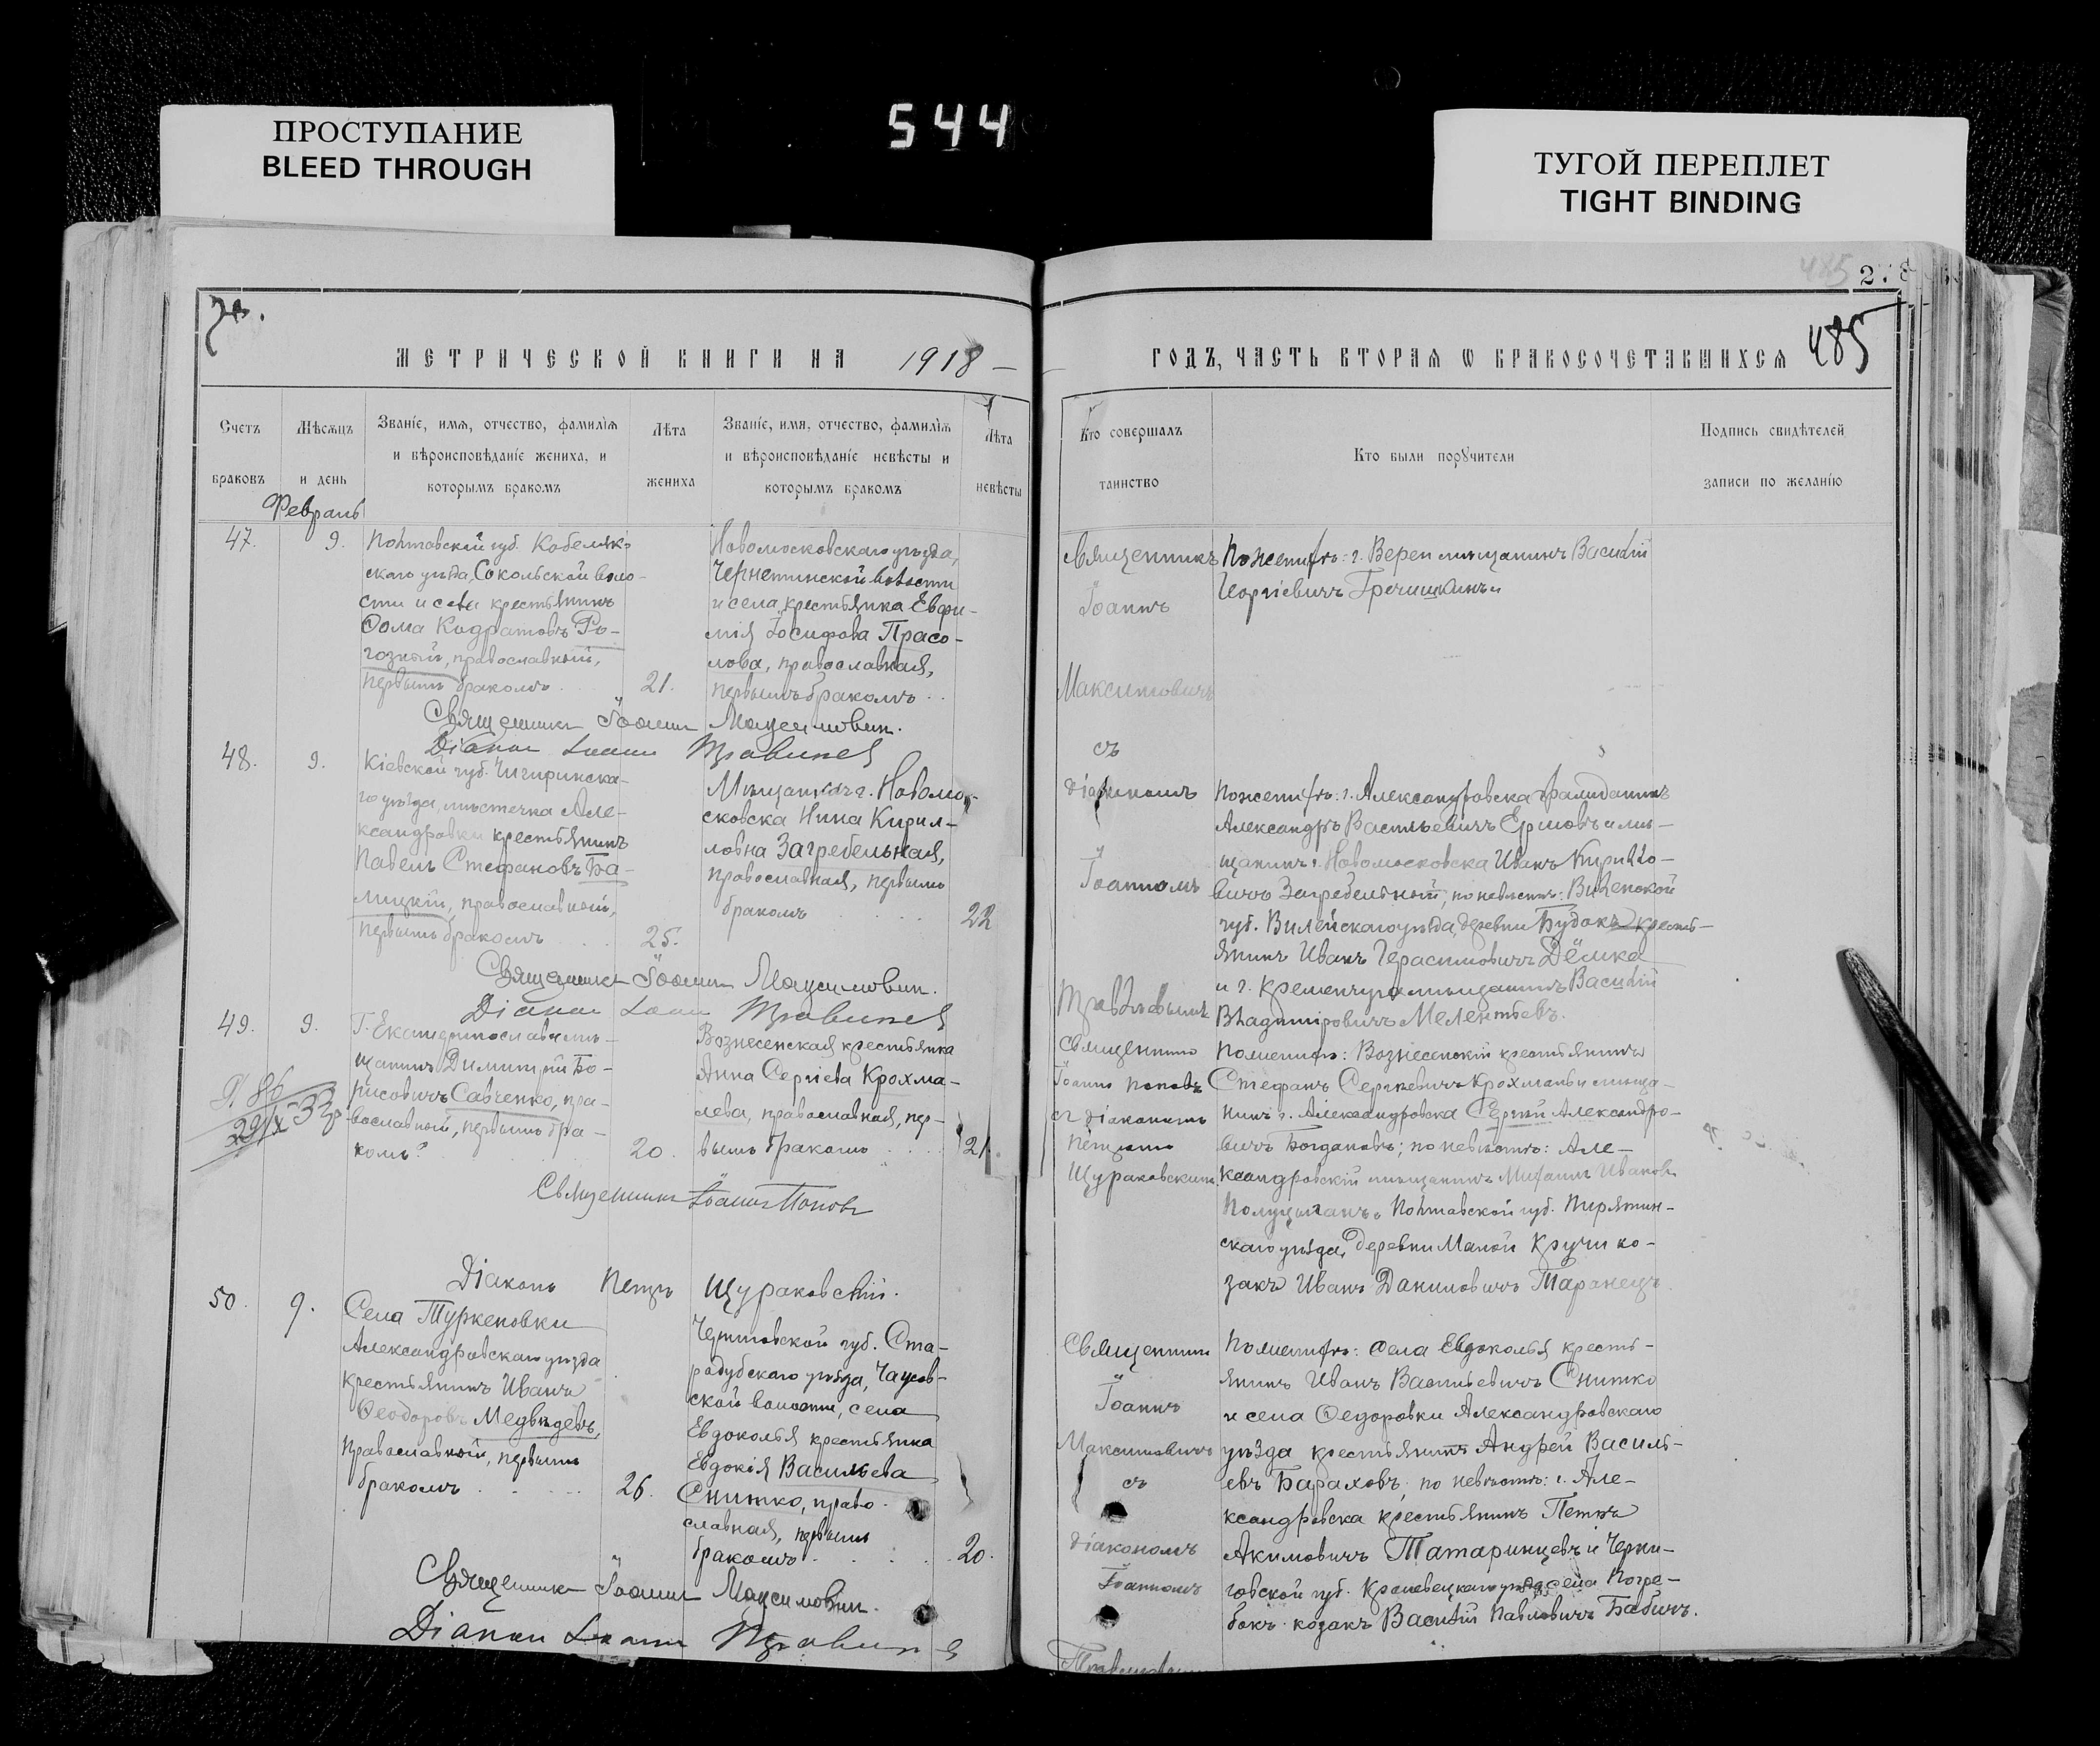 ПРОСТУПАНИЕ
BLEED THROUGH
544
ТУГОЙ ПЕРЕПЛЕТ
TIGHT BINDING
485
485
МЕТРИЧЕСКОЙ КНИГИ НА 1918
ГОДЪ, ЧАСТЬ ВТОРАЯ Ѡ БРАКОСОЧЕТАВШИХСЯ
Счетъ
браковъ
Мѣсяцъ
и день
Званіе, имя, отчество, фамилія
и вѣроисповѣданіе жениха, и
которымъ бракомъ
Лѣта
жениха
Званіе, имя, отчество, фамилія
и вѣроисповѣданіе невѣсты и
которымъ бракомъ
Лѣта
невѣсты
Кто совершалъ
таинство
Кто были поручители
Подпись свидѣтелей
записи по желанію
Февраль
47.
9.
Полтавской губ. Кобеляк-
скаго уѣзда, Сокольской воло-
сти и села крестьянинъ
Ѳома Кодратовъ Ро-
гозный, православный,
первымъ бракомъ
21.
Новомосковскаго уѣзда,
Чернетинской волости
и села, крестьянка Евфи-
мія Іосифова Прасо-
лова, православная,
первымъ бракомъ
Священникъ
Іоаннъ
Максимовичъ
съ
діакономъ
Іоанномъ
Травлевымъ
По женихѣ: г. Вереи мѣщанинъ Василій
Георгіевичъ Гречишкинъ
Священникъ Іоаннъ Максимовичъ.
Діаконъ Іоаннъ
48.
9.
Кіевской губ. Чигиринска-
го уѣзда, мѣстечка Але-
ксандровки крестьянинъ
Павелъ Стефановъ Ба-
лицкій, православный,
первымъ бракомъ
25.
Мѣщанка г. Новомо-
сковска Нина Кирил-
ловна Загребельная,
православная, первымъ
бракомъ
22
По женихѣ: г. Александровска гражданинъ
Александръ Васильевичъ Ермовъ и мѣ-
щанинъ г. Новомосковска Иванъ Кирилло-
вичъ Загребельный, по невѣстѣ: Виленской
губ. Вилейскаго уѣзда, деревни Будокъ крестъ-
янинъ Иванъ Герасимовичъ Дёмка
и г. Кременчуга мѣщанинъ Василій
Владиміровичъ Мелентьевъ.
Священникъ Іоаннъ Максимовичъ.
Діаконъ Іоаннъ
49.
9.
Г. Екатеринослава мѣ-
щанинъ Димитрій Бо-
рисовичъ Савченко, пра-
вославный, первымъ бра-
комъ
20.
Вознесенская крестьянка
Анна Сергіева Крохма-
лева, православная, пер-
вымъ бракомъ
21.
Священникъ
Іоаннъ Поповъ
съ діакономъ
Петромъ
Щураковскимъ
По женихѣ: Вознесенскій крестьянинъ
Стефанъ Сергѣевичъ Крохмалевъ и мѣща-
нинъ г. Александровска Сергій Александро-
вичъ Богдановъ; по невѣстѣ: Але-
ксандровскій мѣщанинъ Михаилъ Ивановъ
Полуцыганъ и Полтавской губ. Пирятин-
скаго уѣзда, деревни Малой Кручи ко-
закъ Иванъ Даниловичъ Таранецъ.
Священникъ Іоаннъ Поповъ
Діаконъ Петръ Щураковскій.
50.
9.
Села Туркеновки
Александровскаго уѣзда
крестьянинъ Иванъ
Ѳеодоровъ Медвѣдевъ,
православный, первымъ
бракомъ
26.
Черниговской губ. Ста-
родубскаго уѣзда, Чаусов-
ской волости, села
Евдоколья крестьянка
Евдокія Васильева
Снитко, право-
славная, первымъ
бракомъ
20.
Священникъ
Іоаннъ
Максимовичъ
съ
діакономъ
Іоанномъ
По женихѣ: села Евдоколья кресть-
янинъ Иванъ Васильевичъ Снитко
и села Ѳедоровки Александровскаго
уѣзда крестьянинъ Андрей Василь-
евъ Бараховъ, по невѣстѣ: г. Але-
ксандровска крестьянинъ Петръ
Акимовичъ Татаринцевъ и Черни-
говской губ. Кролевецкаго уѣзда, села Погре-
бокъ козакъ Василій Павловичъ Бабичъ.
Священникъ Іоаннъ Максимовичъ.
Діаконъ Іоаннъ